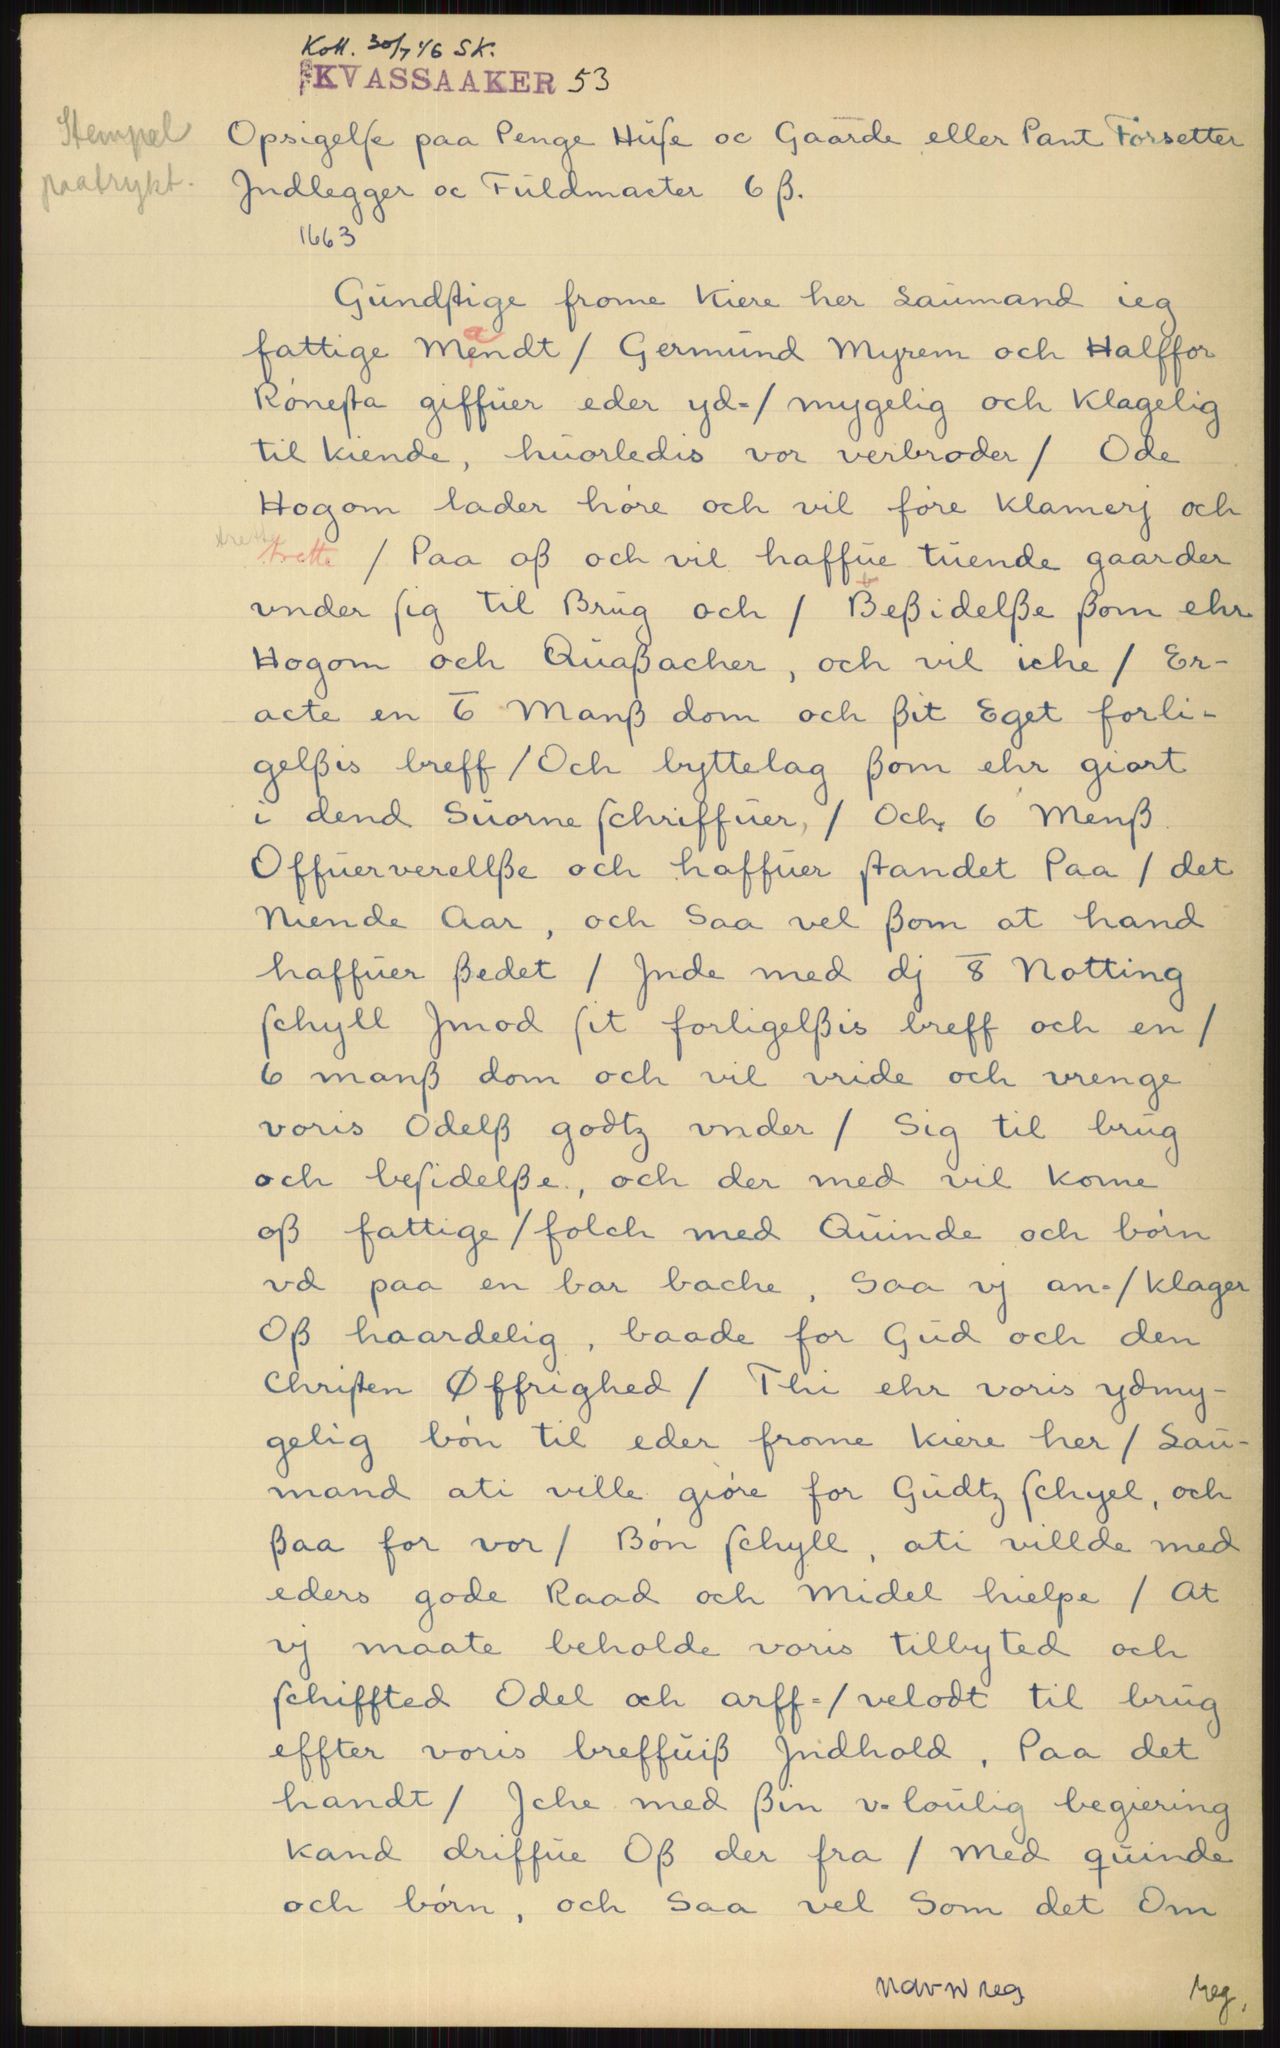 Koll. 30/7 46 SK.
KVASSAAKER 53
Stempel
paatrykt.
Opsigelſe paa Penge Huſe oc Gaarde eller Pant Forsetter
Jndlegger oc Fuldmacter 6 ß.
1663
Gundſtige frome Kiere her Laumand ieg
fattige Mandt / Germund Myrem och Halffor
Róneſta giffuer eder yd=/ mygelig och Klagelig
til kiende, huorledis vor verbroder / Ode
Hogom lader hóre och vil fóre Klamerj och
trette / Paa oß och vil haffue tuende gaarder
vnder ſig til Brug och / Beßidelße ßom ehr
Hogom och Quaßacher, och vil iche / Er-
acte en 6 Manß dom och ßit Eget forli-
gelßis breff / Och byttelag ßom ehr giort
i dend Suorne ſchriffuer, / Och 6 Menß
Offuerverellße och haffuer ſtandet Paa / det
Niende Aar, och Saa vel ßom at hand
haffuer ßedet / Jnde med dj 8 Notting
ſchyll Jmod ſit forligelßis breff och en /
6 manß dom och vil vride och vrenge
voris Odelß godtz vnder / Sig til brug
och beſidelße, och der med vil kome
oß fattige / folch med Quinde och bórn
vd paa en bar bache, Saa vj an=/ klager
Oß haardelig, baade for Gud och den
Chriſten Øffrighed / Thi ehr voris ydmy-
gelig bón til eder frome kiere her / Lau-
mand ati ville gióre for Gudtz ſchyel, och
ßaa for vor / Bón ſchyll, ati villde med
eders gode Raad och Midel hielpe / At
vj maate beholde voris tilbyted och
ſchiffted Odel och arff=/ velodt til brug
effter voris breffuiß Jndhold, Paa det
handt / Jche med ßin v=loulig begiering
kand driffue Oß der fra / Med quinde
och bórn, och Saa vel Som det Om
Navn reg
reg.